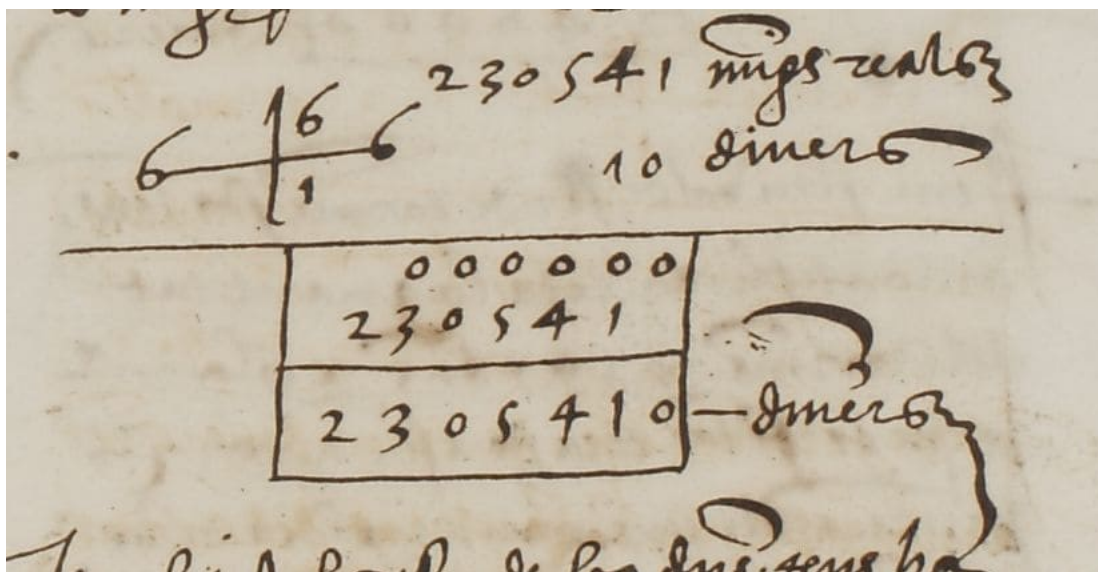 230541 migs reals
6 6 6 1
10 diners
000000
230541
2305410 — diners
de los